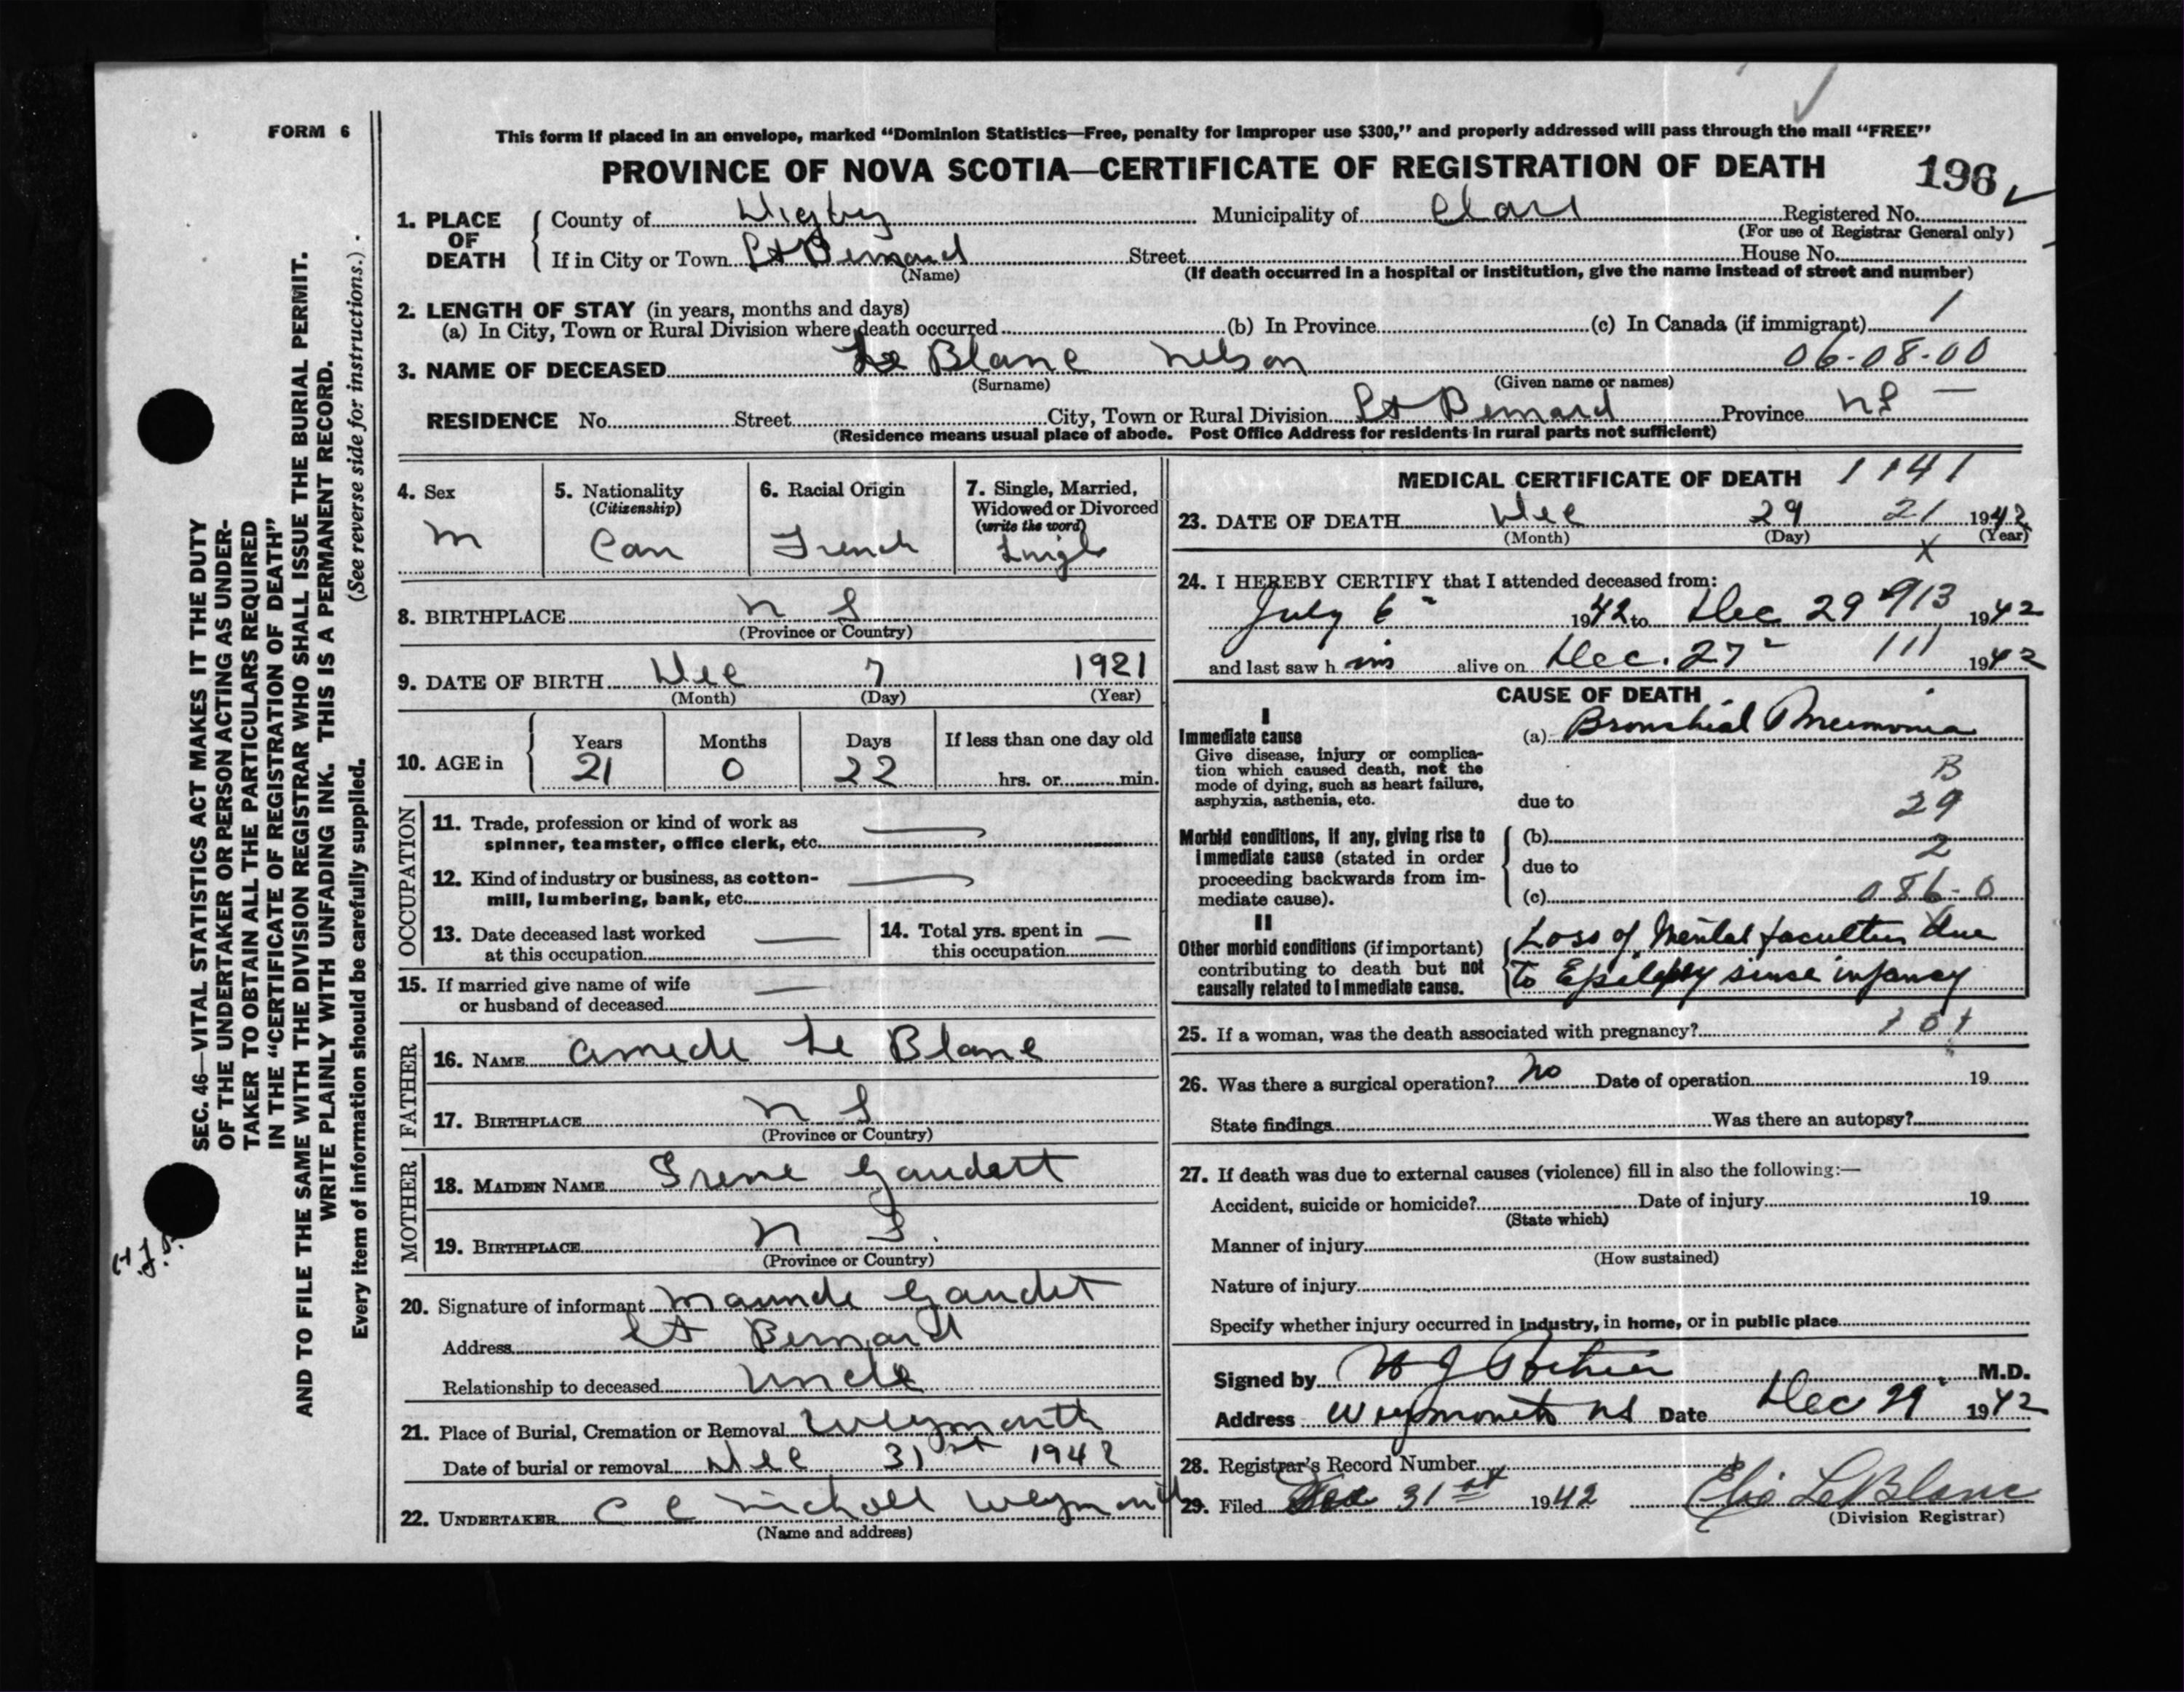 FORM 6
This form if placed in an envelope, marked “Dominion Statistics—Free, penalty for improper use $300,” and properly addressed will pass through the mail “FREE”
PROVINCE OF NOVA SCOTIA—CERTIFICATE OF REGISTRATION OF DEATH
196
1. PLACE OF DEATH
County of Digby Municipality of Clare Registered No.
(For use of Registrar General only)
If in City or Town St Bernard Street House No.
(Name) (If death occurred in a hospital or institution, give the name instead of street and number)
2. LENGTH OF STAY (in years, months and days) 1
(a) In City, Town or Rural Division where death occurred (b) In Province (c) In Canada (if immigrant)
3. NAME OF DECEASED Le Blanc Nelson 06-08-00
(Surname) (Given name or names)
RESIDENCE No. Street City, Town or Rural Division St Bernard Province N S —
(Residence means usual place of abode. Post Office Address for residents in rural parts not sufficient)
4. Sex
M
5. Nationality
(Citizenship)
Can
6. Racial Origin
French
7. Single, Married,
Widowed or Divorced
(write the word)
Single
8. BIRTHPLACE N S
(Province or Country)
9. DATE OF BIRTH Dec 7 1921
(Month) (Day) (Year)
10. AGE in
Years Months Days If less than one day old
21 0 22 hrs. or min.
OCCUPATION
11. Trade, profession or kind of work as
spinner, teamster, office clerk, etc. —
12. Kind of industry or business, as cotton-
mill, lumbering, bank, etc. —
13. Date deceased last worked
at this occupation —
14. Total yrs. spent in
this occupation —
15. If married give name of wife
or husband of deceased —
FATHER
16. NAME Amede Le Blanc
17. BIRTHPLACE N S
(Province or Country)
MOTHER
18. MAIDEN NAME Irene Gaudett
19. BIRTHPLACE N S.
(Province or Country)
20. Signature of informant Gaudet
Address St Bernard
Relationship to deceased Uncle
21. Place of Burial, Cremation or Removal Weymouth
Date of burial or removal Dec 31st 1942
22. UNDERTAKER C C Nicholl Weymouth
(Name and address)
MEDICAL CERTIFICATE OF DEATH 1141
23. DATE OF DEATH Dec 29 21 1942
(Month) (Day) (Year)
X
24. I HEREBY CERTIFY that I attended deceased from:
July 6 1942 to Dec 29 913 1942
and last saw h im alive on Dec. 27 111 1942
CAUSE OF DEATH
I
Immediate cause
Give disease, injury or complica-
tion which caused death, not the
mode of dying, such as heart failure,
asphyxia, asthenia, etc.
(a) Bronchial Pneumonia
B
due to 29
Morbid conditions, if any, giving rise to
immediate cause (stated in order
proceeding backwards from im-
mediate cause).
(b)
2
due to
(c) 086-0
II
Other morbid conditions (if important)
contributing to death but not
causally related to immediate cause.
Loss of Mental faculties due
to Epilepsy since infancy
25. If a woman, was the death associated with pregnancy? 101
26. Was there a surgical operation? No Date of operation 19
State findings Was there an autopsy?
27. If death was due to external causes (violence) fill in also the following:—
Accident, suicide or homicide? Date of injury 19
(State which)
Manner of injury
(How sustained)
Nature of injury
Specify whether injury occurred in industry, in home, or in public place
Signed by W J Pothier M.D.
Address Weymouth NS Date Dec 29 1942
28. Registrar's Record Number
29. Filed Dec 31st 1942 LeBlanc
(Division Registrar)
SEC. 46—VITAL STATISTICS ACT MAKES IT THE DUTY
OF THE UNDERTAKER OR PERSON ACTING AS UNDER-
TAKER TO OBTAIN ALL THE PARTICULARS REQUIRED
IN THE “CERTIFICATE OF REGISTRATION OF DEATH”
AND TO FILE THE SAME WITH THE DIVISION REGISTRAR WHO SHALL ISSUE THE BURIAL PERMIT.
WRITE PLAINLY WITH UNFADING INK. THIS IS A PERMANENT RECORD.
Every item of information should be carefully supplied. (See reverse side for instructions.)